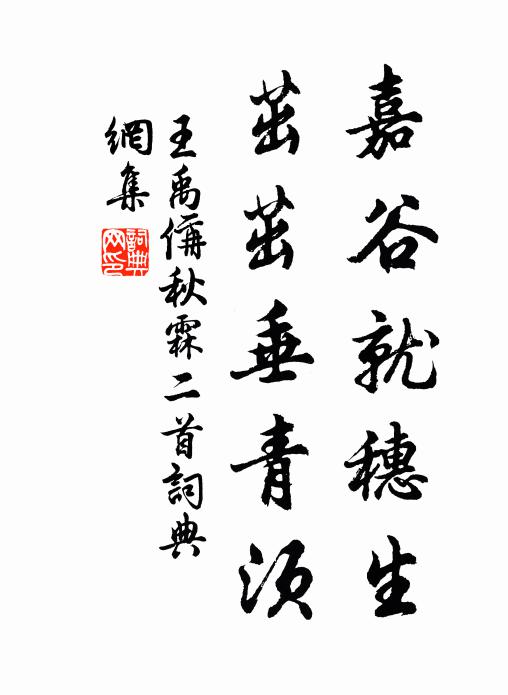 嘉谷就穗生
茁茁垂青须
王禹偁秋霖二首詞典
網集
詞典網印